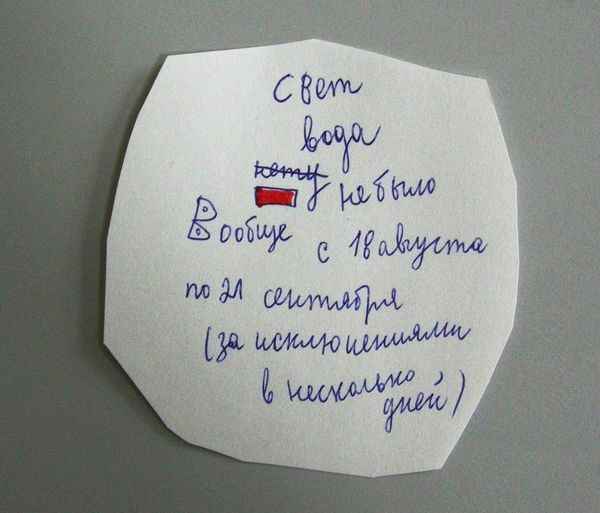 Свет
вода
нету
не было
Вообще с 18 августа
по 21 сентября
(за исключениями
в несколько
дней)